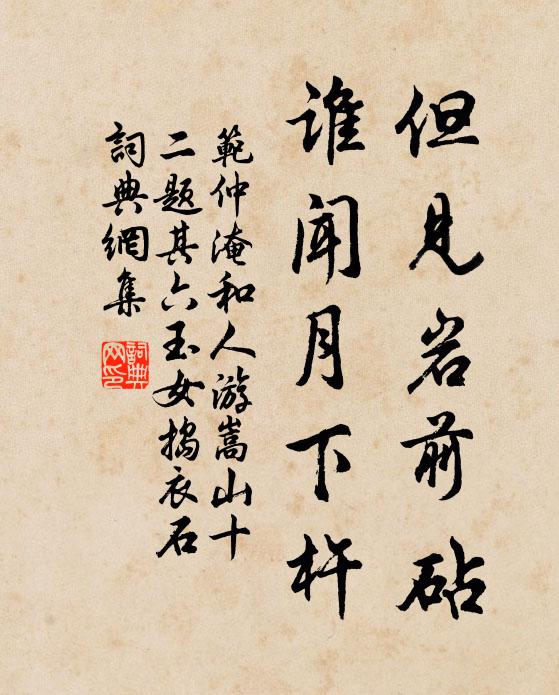 但见岩前砧
谁闻月下杵
範仲淹和人游嵩山十
二题其六玉女捣衣石
詞典網集
詞典
网印